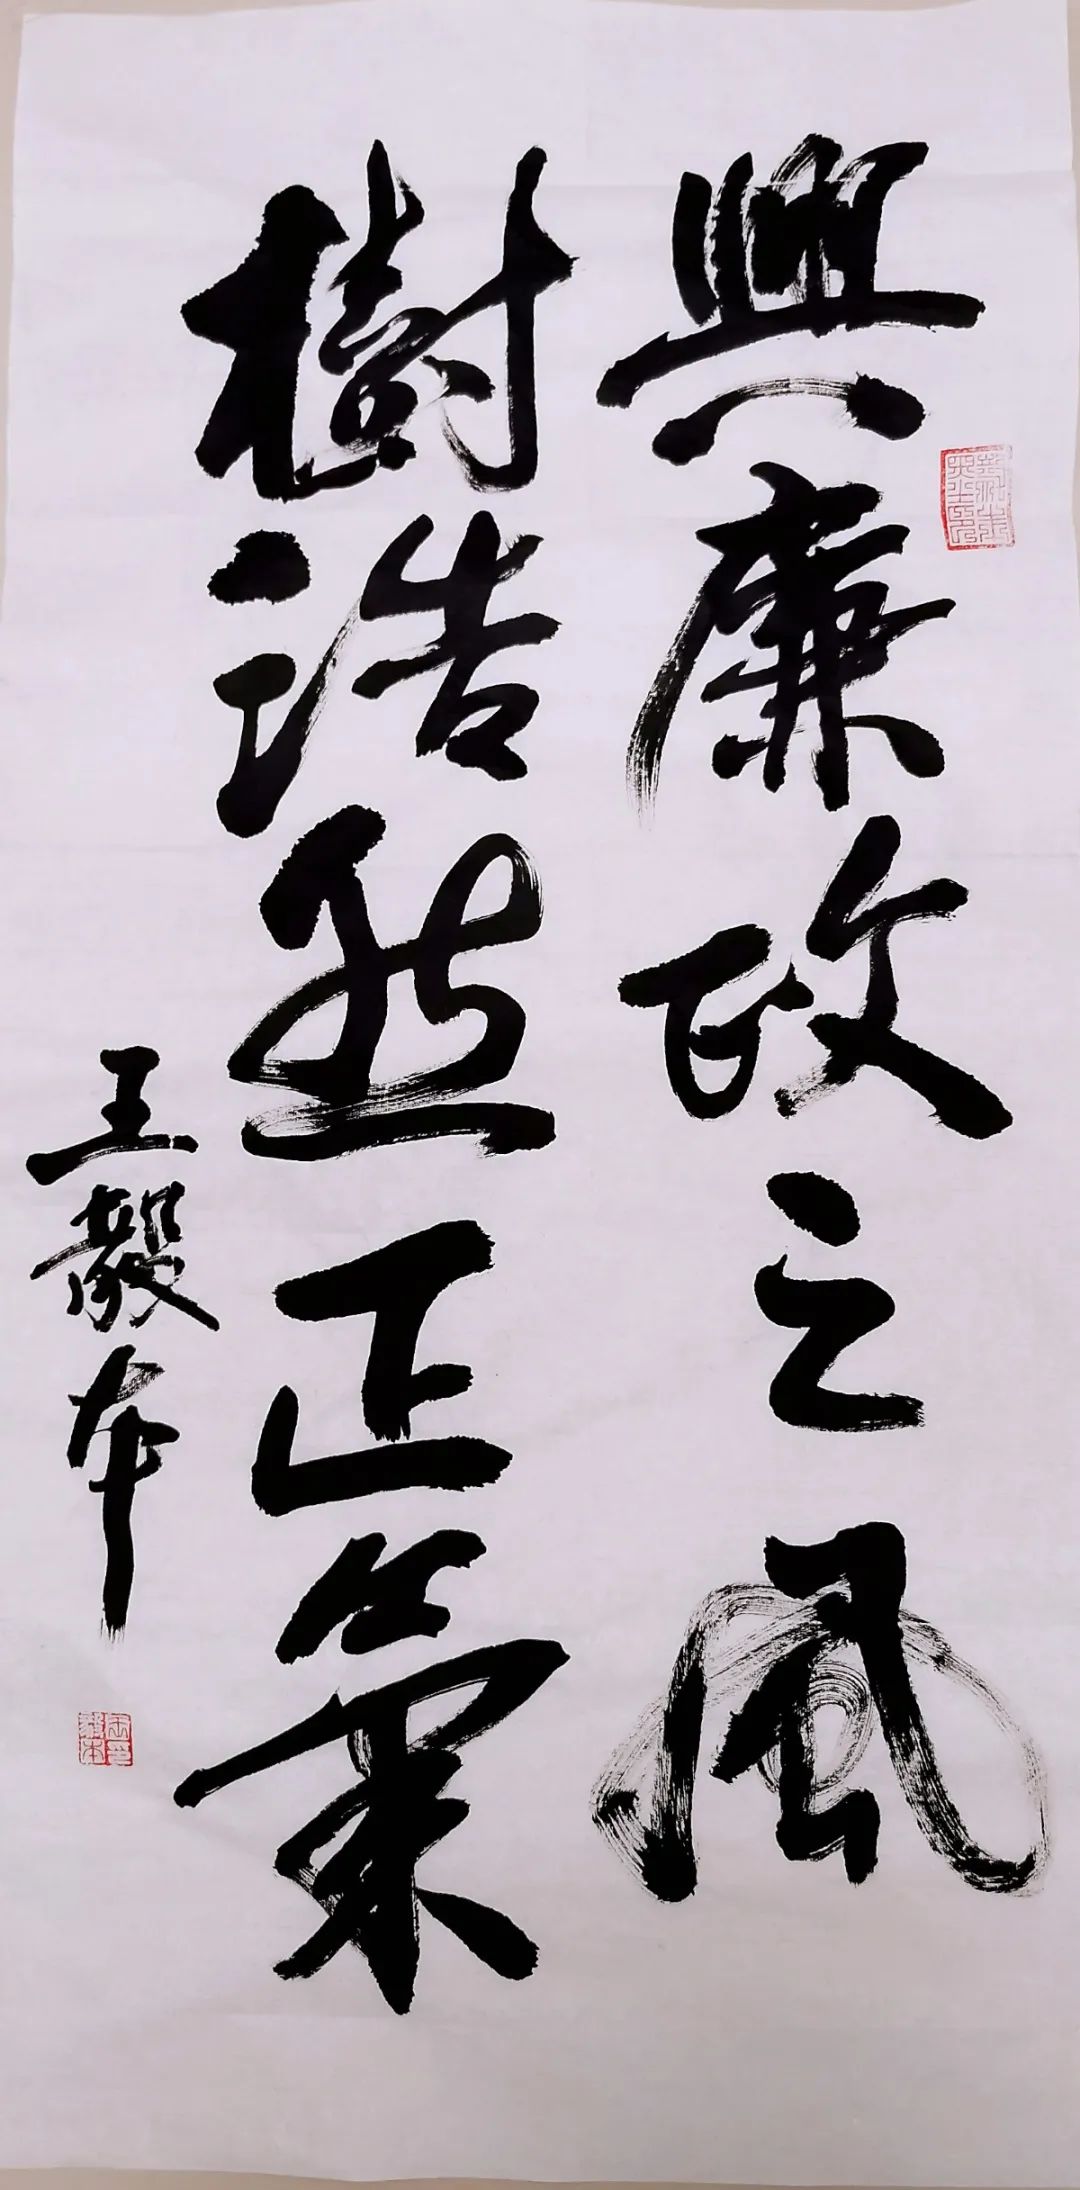 興廉政之風
樹浩然正氣
王毅本